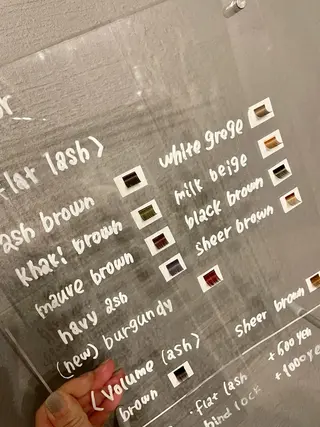 or
flat lash)
ash brown
khaki brown
mauve brown
navy ash
(new) burgundy
white grege
milk beige
black brown
sheer brown
(volume lash)
brown
sheer brown
・flat lash +500yen
bind lock +1000ye